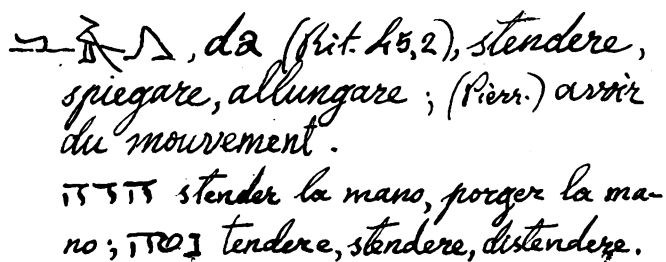 , da (Rit. 45,2), stendere,
spiegare, allungare ; (Pierr.) avoir
du mouvement .
הדה stender la mano, porger la ma-
no ; נטה tendere, stendere, distendere.